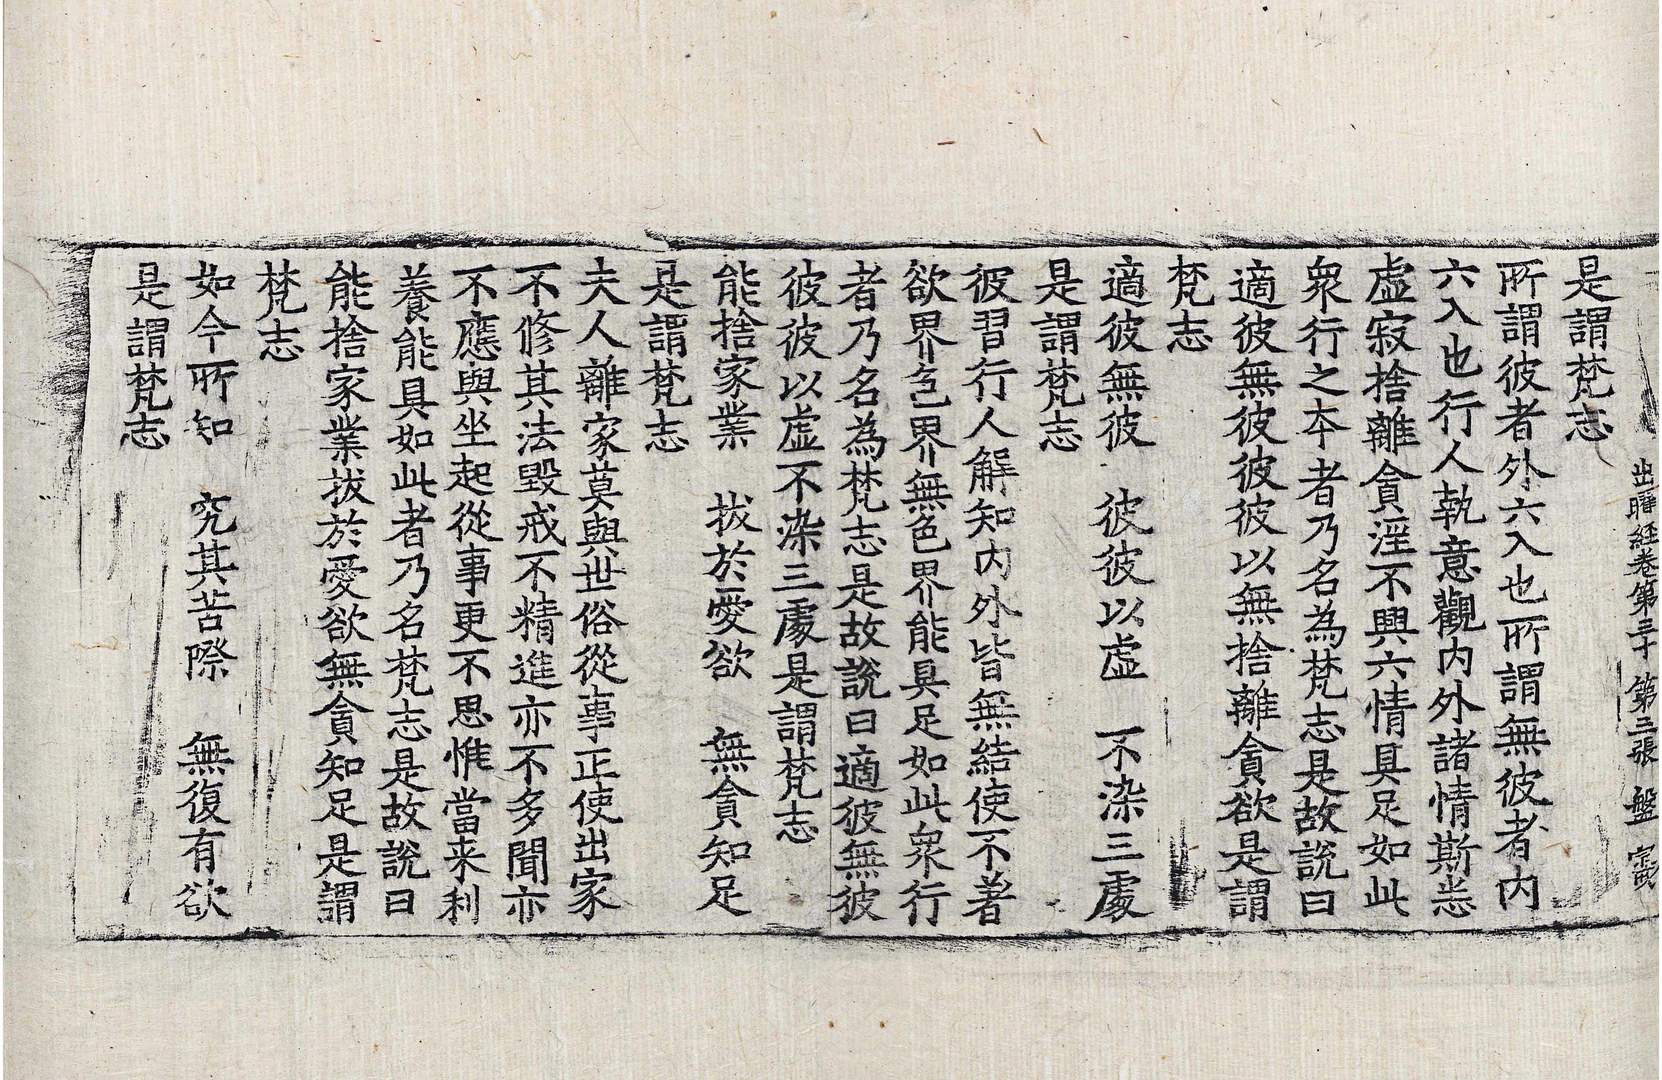 出曜經卷第三十 第三張 盤
是謂梵志
所謂彼者外六入也所謂無彼者內
六入也行人執意觀內外諸情斯悉
虛寂捨離貪淫不興六情具足如此
衆行之本者乃名為梵志是故說曰
適彼無彼彼彼以無捨離貪欲是謂
梵志
適彼無彼 彼彼以虛 不染三處
是謂梵志
彼習行人解知內外皆無結使不著
欲界色界無色界能具足如此衆行
者乃名為梵志是故說曰適彼無彼
彼彼以虛不染三處是謂梵志
能捨家業 拔於愛欲 無貪知足
是謂梵志
夫人離家莫與世俗從事正使出家
不修其法毀戒不精進亦不多聞亦
不應與坐起從事更不思惟當来利
養能具如此者乃名梵志是故說曰
能捨家業拔於愛欲無貪知足是謂
梵志
如今所知 究其苦際 無復有欲
是謂梵志